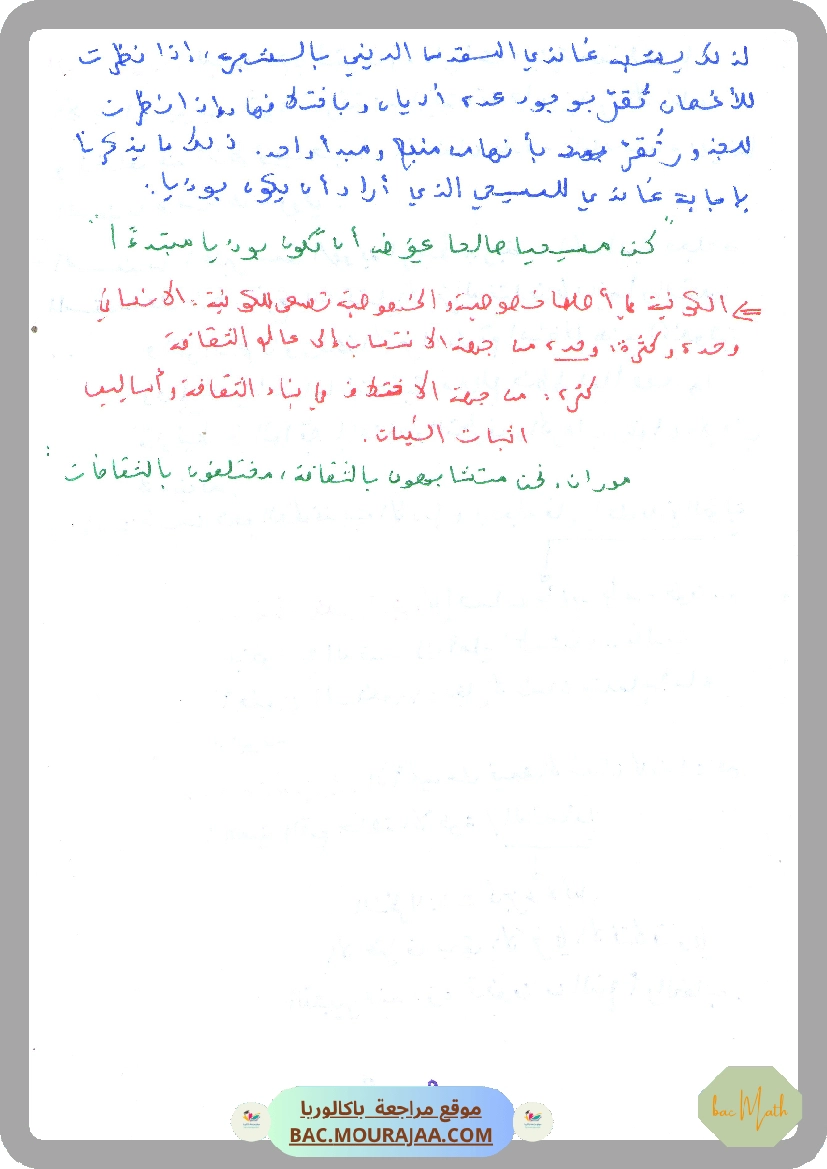 لذلك يشبه غاندي المقدس الديني بالشجرة، إذا نظرت
للأغصان تُقرّ بوجود عدة أديان وباختلافها وإذا نظرت
للجذور تُقرّ بأنها من منبع ومبدأ واحد. ذلك ما يذكرنا
بإجابة غاندي للمسيحي الذي أراد أن يكون بوذيا.
"كن مسيحيا صالحا عوض أن تكون بوذيا مبتدءًا"
⇐ الكونية في أصلها خصوصية والخصوصية تسعى للكونية. الإنساني
وحدة وكثرة: وحدة من جهة الانتساب إلى عالم الثقافة
كثرة: من جهة الاختلاف في بناء الثقافة وأساليب
اثبات الذات.
موران: نحن متشابهون بالثقافة، مختلفون بالثقافات
موقع مراجعة باكالوريا
BAC.MOURAJAA.COM
bac Math